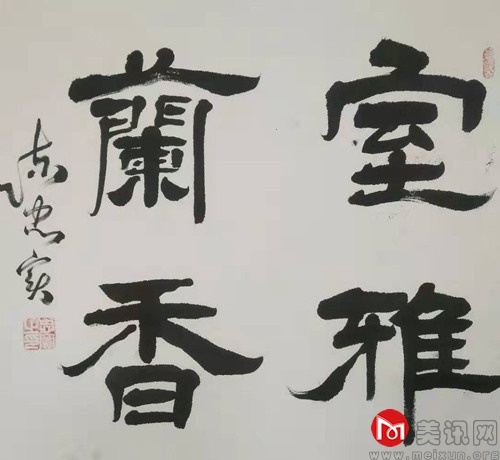 室雅
蘭香
陈忠实
美讯网
www.meixun.org